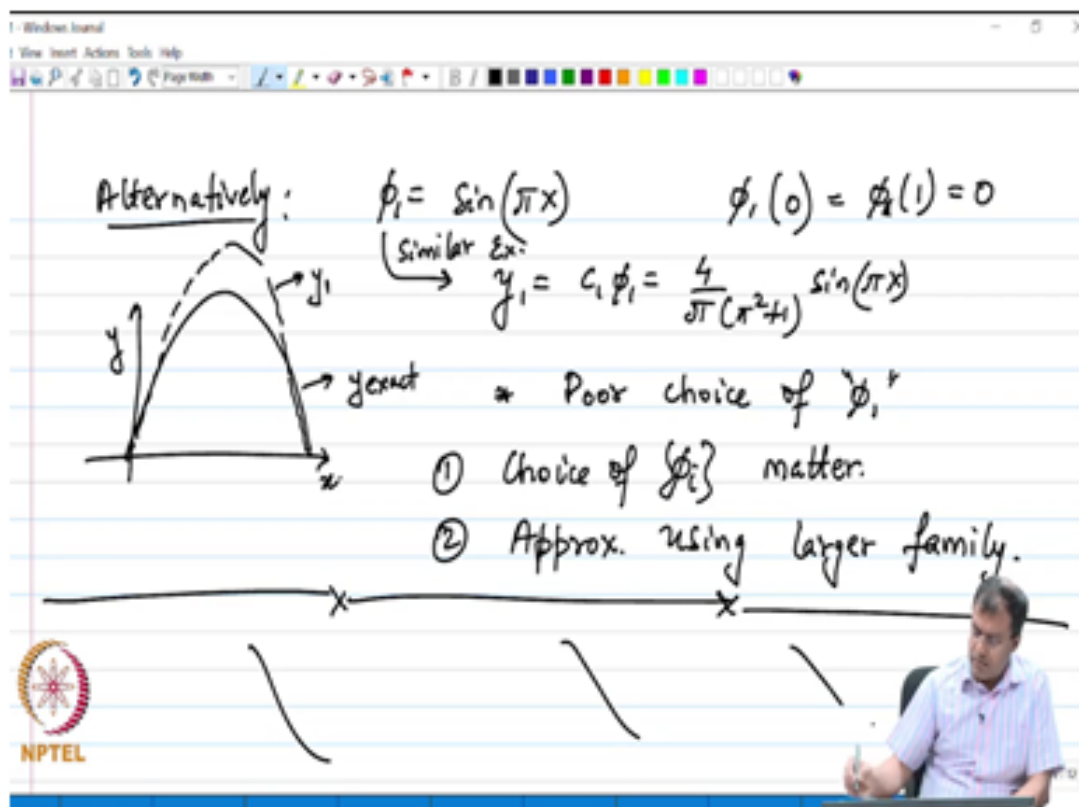 - Windows Journal
View Insert Actions Tools Help
Page Width
B I
Alternatively: ϕ₁ = sin(πx) ϕ₁(0) = ϕ₁(1) = 0
Similar Ex:
y₁ = c₁ϕ₁ = 4/(π(π²+1)) sin(πx)
y₁
y
y exact
x
* Poor choice of "ϕ₁"
① Choice of {ϕi} matter.
② Approx. using larger family.
NPTEL